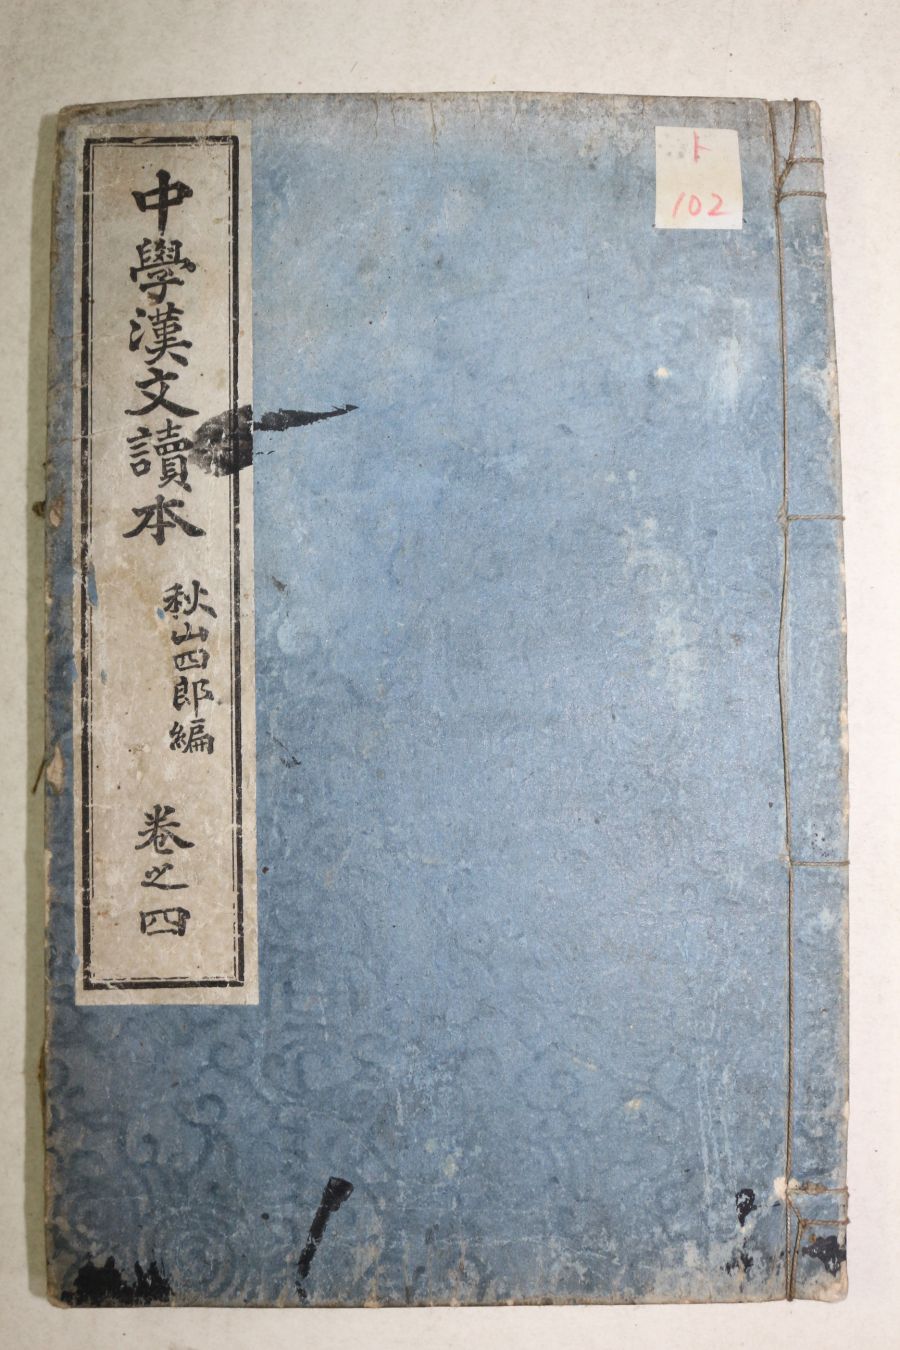 ト
102
中學漢文讀本
秋山四郎編
卷之四